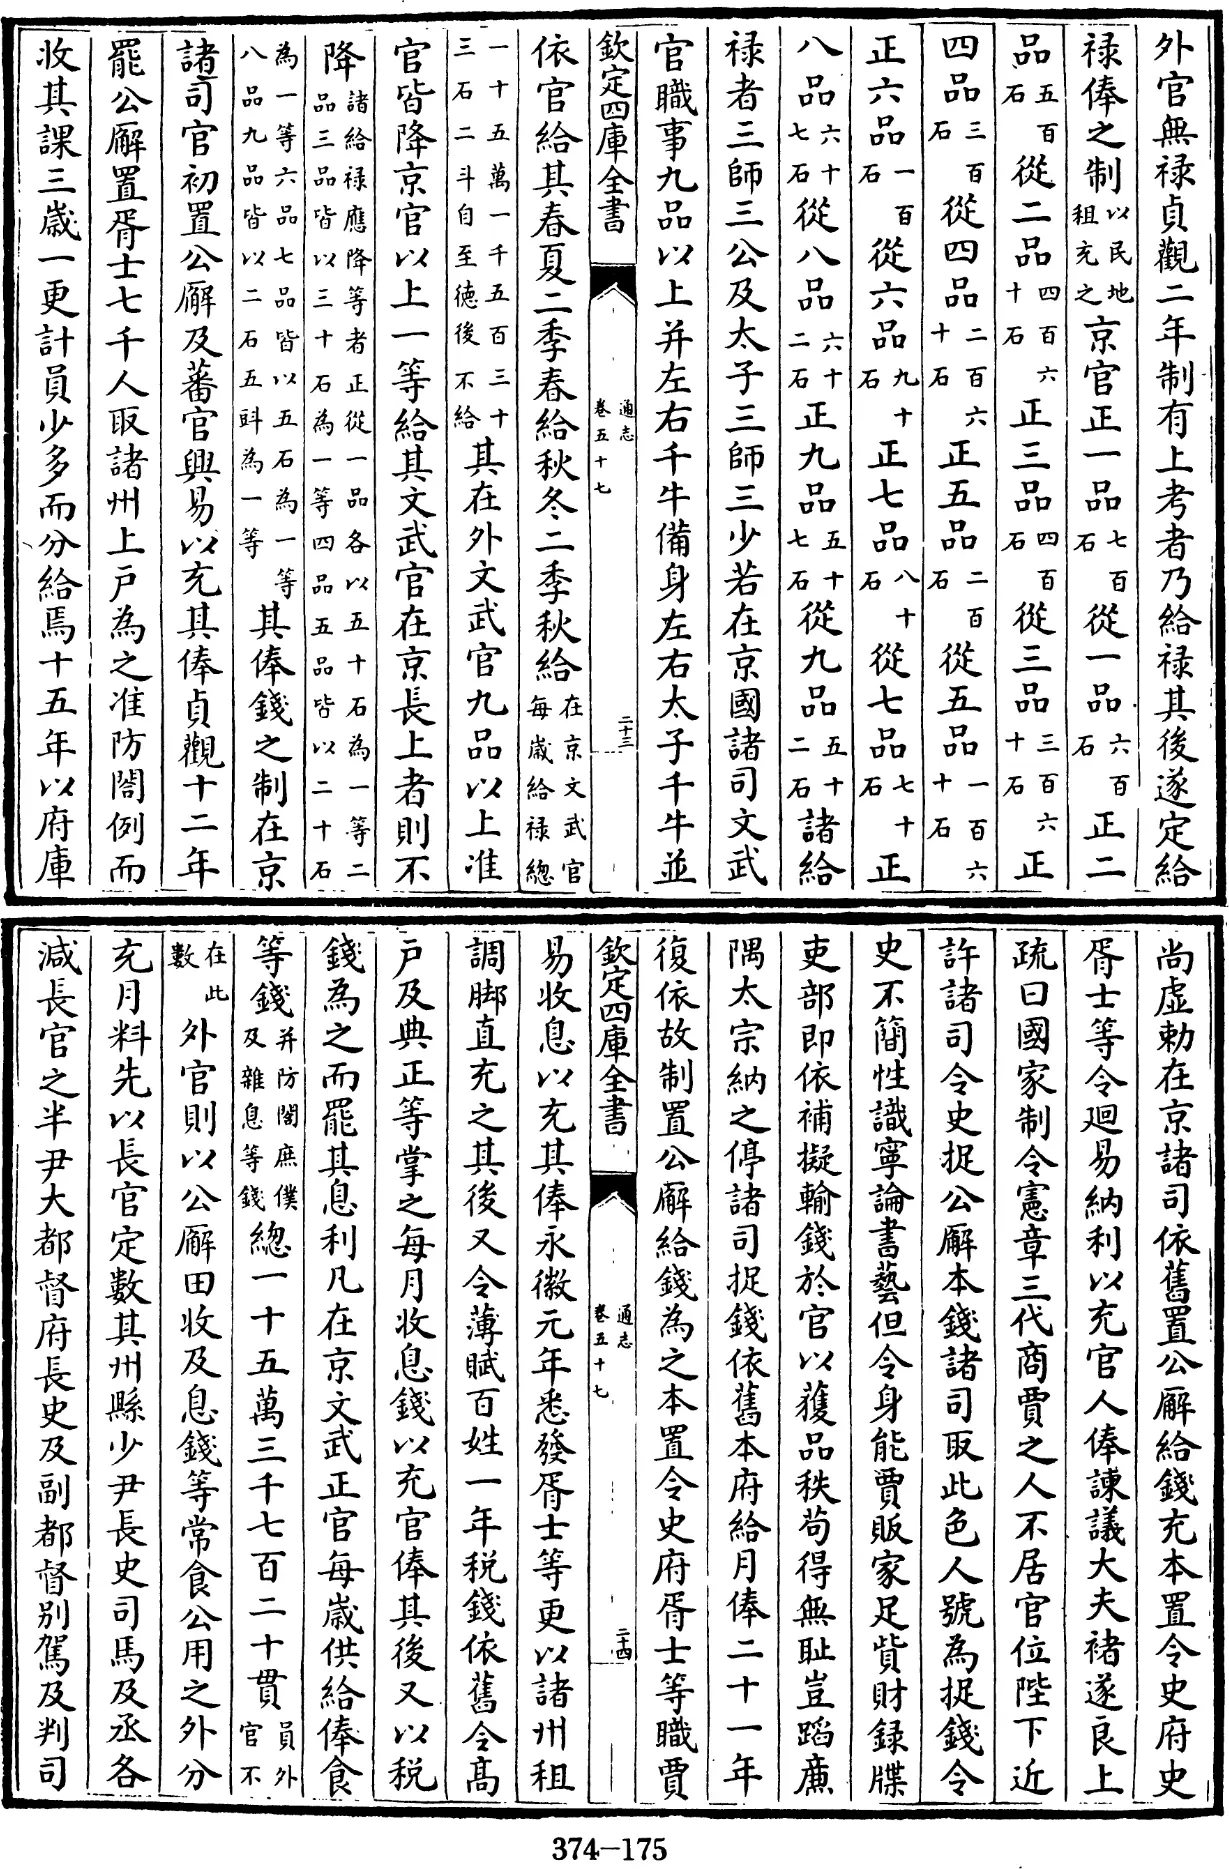 外官無禄貞觀二年制有上考者乃給禄其後遂定給
禄俸之制以民地租充之京官正一品七百石從一品六百石正二
品五百石從二品四百六十石正三品四百石從三品三百六十石正
四品三百石從四品二百六十石正五品二百石從五品一百六十石
正六品一百石從六品九十石正七品八十石從七品七十石正
八品六十七石從八品六十二石正九品五十七石從九品五十二石諸給
禄者三師三公及太子三師三少若在京國諸司文武
官職事九品以上并左右千牛備身左右太子千牛並
欽定四庫全書
通志
卷五十七
二十三
依官給其春夏二季春給秋冬二季秋給在京文武官每嵗給禄總
一十五萬一千五百三十三石二斗自至徳後不給其在外文武官九品以上准
官皆降京官以上一等給其文武官在京長上者則不
降諸給禄應降等者正從一品各以五十石為一等二品三品皆以三十石為一等四品五品皆以二十石
為一等六品七品皆以五石為一等八品九品皆以二石五㪷為一等其俸錢之制在京
諸司官初置公廨及蕃官興易以充其俸貞觀十二年
罷公廨置胥士七千人取諸州上戸為之准防閤例而
收其課三嵗一更計員少多而分給焉十五年以府庫
尚虚勅在京諸司依舊置公廨給錢充本置令史府史
胥士等令廻易納利以充官人俸諫議大夫褚遂良上
疏曰國家制令憲章三代商賈之人不居官位陛下近
許諸司令史捉公廨本錢諸司取此色人號為捉錢令
史不簡性識寧論書藝但令身能賈販家足貲財録牒
吏部即依補擬輸錢於官以獲品秩苟得無耻豈蹈亷
隅太宗納之停諸司捉錢依舊本府給月俸二十一年
復依故制置公廨給錢為之本置令史府胥士等職賈
欽定四庫全書
通志
卷五十七
二十四
易收息以充其俸永徽元年悉發胥士等更以諸州租
調脚直充之其後又令薄賦百姓一年税錢依舊令髙
戸及典正等掌之每月收息錢以充官俸其後又以税
錢為之而罷其息利凡在京文武正官每嵗供給俸食
等錢并防閤庶僕及雜息等錢總一十五萬三千七百二十貫員外官不
在此數外官則以公廨田收及息錢等常食公用之外分
充月料先以長官定數其州縣少尹長史司馬及丞各
減長官之半尹大都督府長史及副都督别駕及判司
374-175